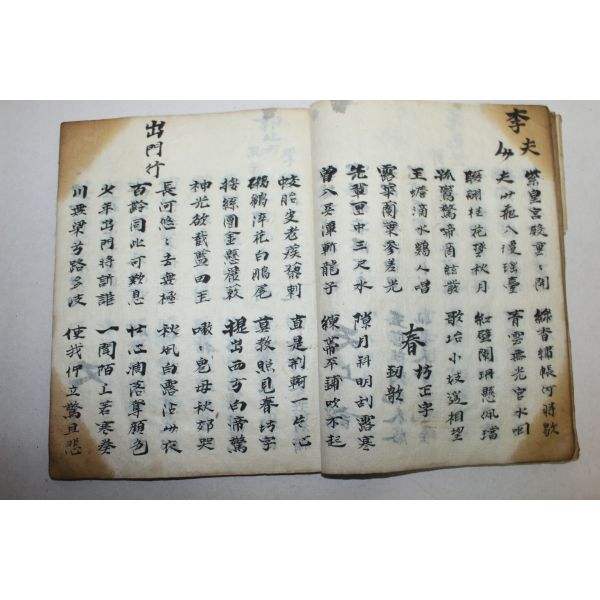 李夫人
紫皇宮殿重〻開 綠香繡帳何時歇
夫人飛入瓊瑤臺 青雲無光宮水咽
翩聯桂花墜秋月 紅壁闌珊懸佩璫
孤鸞驚啼商絃發 歌台小妓遙相望
玉蟾滴水鷄人唱
露華蘭葉參差光
春坊正字
劒歌
先輩匣中三尺水 隙月斜明刮露寒
曾入吳潭斬龍子 練帶平鋪吹不起
蛟胎皮老蒺藜刺 直是荊軻一片心
鸊鵜淬花白鷴尾 莫教照見春坊字
挼絲團金懸簏簌 提出西方白帝驚
神光欲截藍田玉 嗷〻鬼母秋郊哭
出門行
長河悠〻去無極 秋風白露沾人衣
百齡同此可歎息 壯心凋落奪顏色
少年出門將訴誰 一聞陌上苦寒奏
川無梁兮路多岐 使我佇立驚且悲